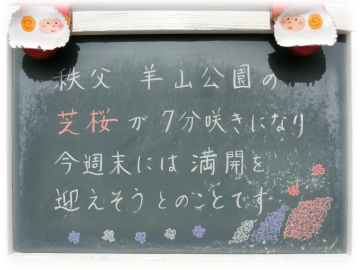 秩父 羊山公園の
芝桜が7分咲きになり
今週末には満開を
迎えそうとのことです